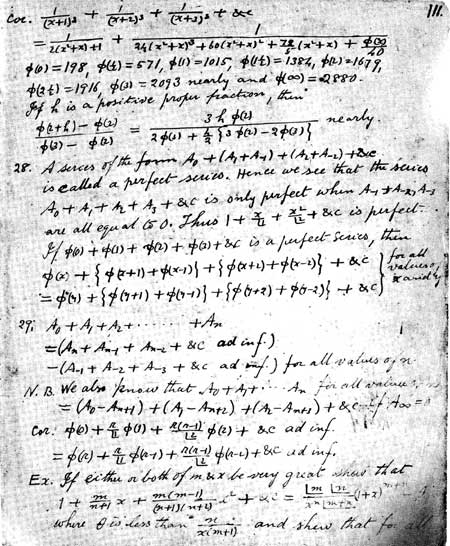 III.
Cor. 1/(x+1)³ + 1/(x+2)³ + 1/(x+3)³ + &c
= 1/(2(x²+x)+1) + 1/(24(x²+x)³ + 60(x²+x)² + 72/5 (x²+x) + φ(x)/40)
φ(0) = 198, φ(½) = 571, φ(1) = 1015, φ(1½) = 1384, φ(2) = 1679,
φ(2½) = 1916, φ(3) = 2093 nearly and φ(∞) = 2880.
If h is a positive proper fraction, then
(φ(2+h) − φ(2))/(φ(3) − φ(2)) = 3hφ(2)/(2φ(2) + {3φ(2) − 2φ(3)}) nearly.
28. A series of the form A₀ + (A₁+A₋₁) + (A₂+A₋₂) + &c
is called a perfect series. Hence we see that the series
A₀ + A₁ + A₂ + A₃ + &c is only perfect when A₋₁, A₋₂, A₋₃
are all equal to 0. Thus 1 + x/|1 + x²/|2 + &c is perfect.
If φ(0) + φ(1) + φ(2) + φ(3) + &c is a perfect series, then
φ(x) + {φ(x+1) + φ(x−1)} + {φ(x+2) + φ(x−2)} + &c
= φ(y) + {φ(y+1) + φ(y−1)} + {φ(y+2) + φ(y−2)} + &c
for all
values of
x and y
29. A₀ + A₁ + A₂ + ...... + Aₙ
= (Aₙ + Aₙ₋₁ + Aₙ₋₂ + &c ad inf.)
− (A₋₁ + A₋₂ + A₋₃ + &c ad inf.) for all values of n.
N.B. We also know that A₀ + A₁ + ... Aₙ for all values
= (A₀ − Aₙ₊₁) + (A₁ − Aₙ₊₂) + (A₂ − Aₙ₊₃) + &c if A∞ = 0
Cor. φ(0) + n/|1 φ(1) + n(n−1)/|2 φ(2) + &c ad inf.
= φ(n) + n/|1 φ(n−1) + n(n−1)/|2 φ(n−2) + &c ad inf.
Ex. If either or both of m & x be very great shew that
1 + m/(n+1) x + m(m−1)/((n+1)(n+2)) x² + &c = |m |n / (xⁿ |m+n) (1+x)ᵐ⁺ⁿ
where θ is less than n/(x(m+1)) and shew that for all